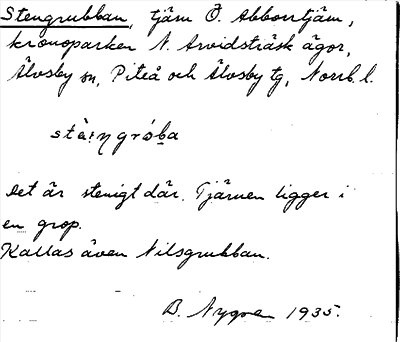 Stengrubban, tjärn Ö. Abborrtjärn,
kronoparken N. Arvidsträsk ägor,
Älvsby sn, Piteå och Älvsby tg, Norrb. l.
stà:ṇgróba
Det är stenigt där. Tjärnen ligger i
en grop.
Kallas även Nilsgrubban.
B. Nygren 1935.